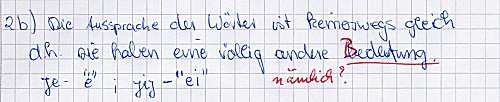 2b) Die Aussprache der Wörter ist keineswegs gleich
d.h. sie haben eine völlig andere Bedeutung.
je - "ë" ; jig - "ei" nämlich?